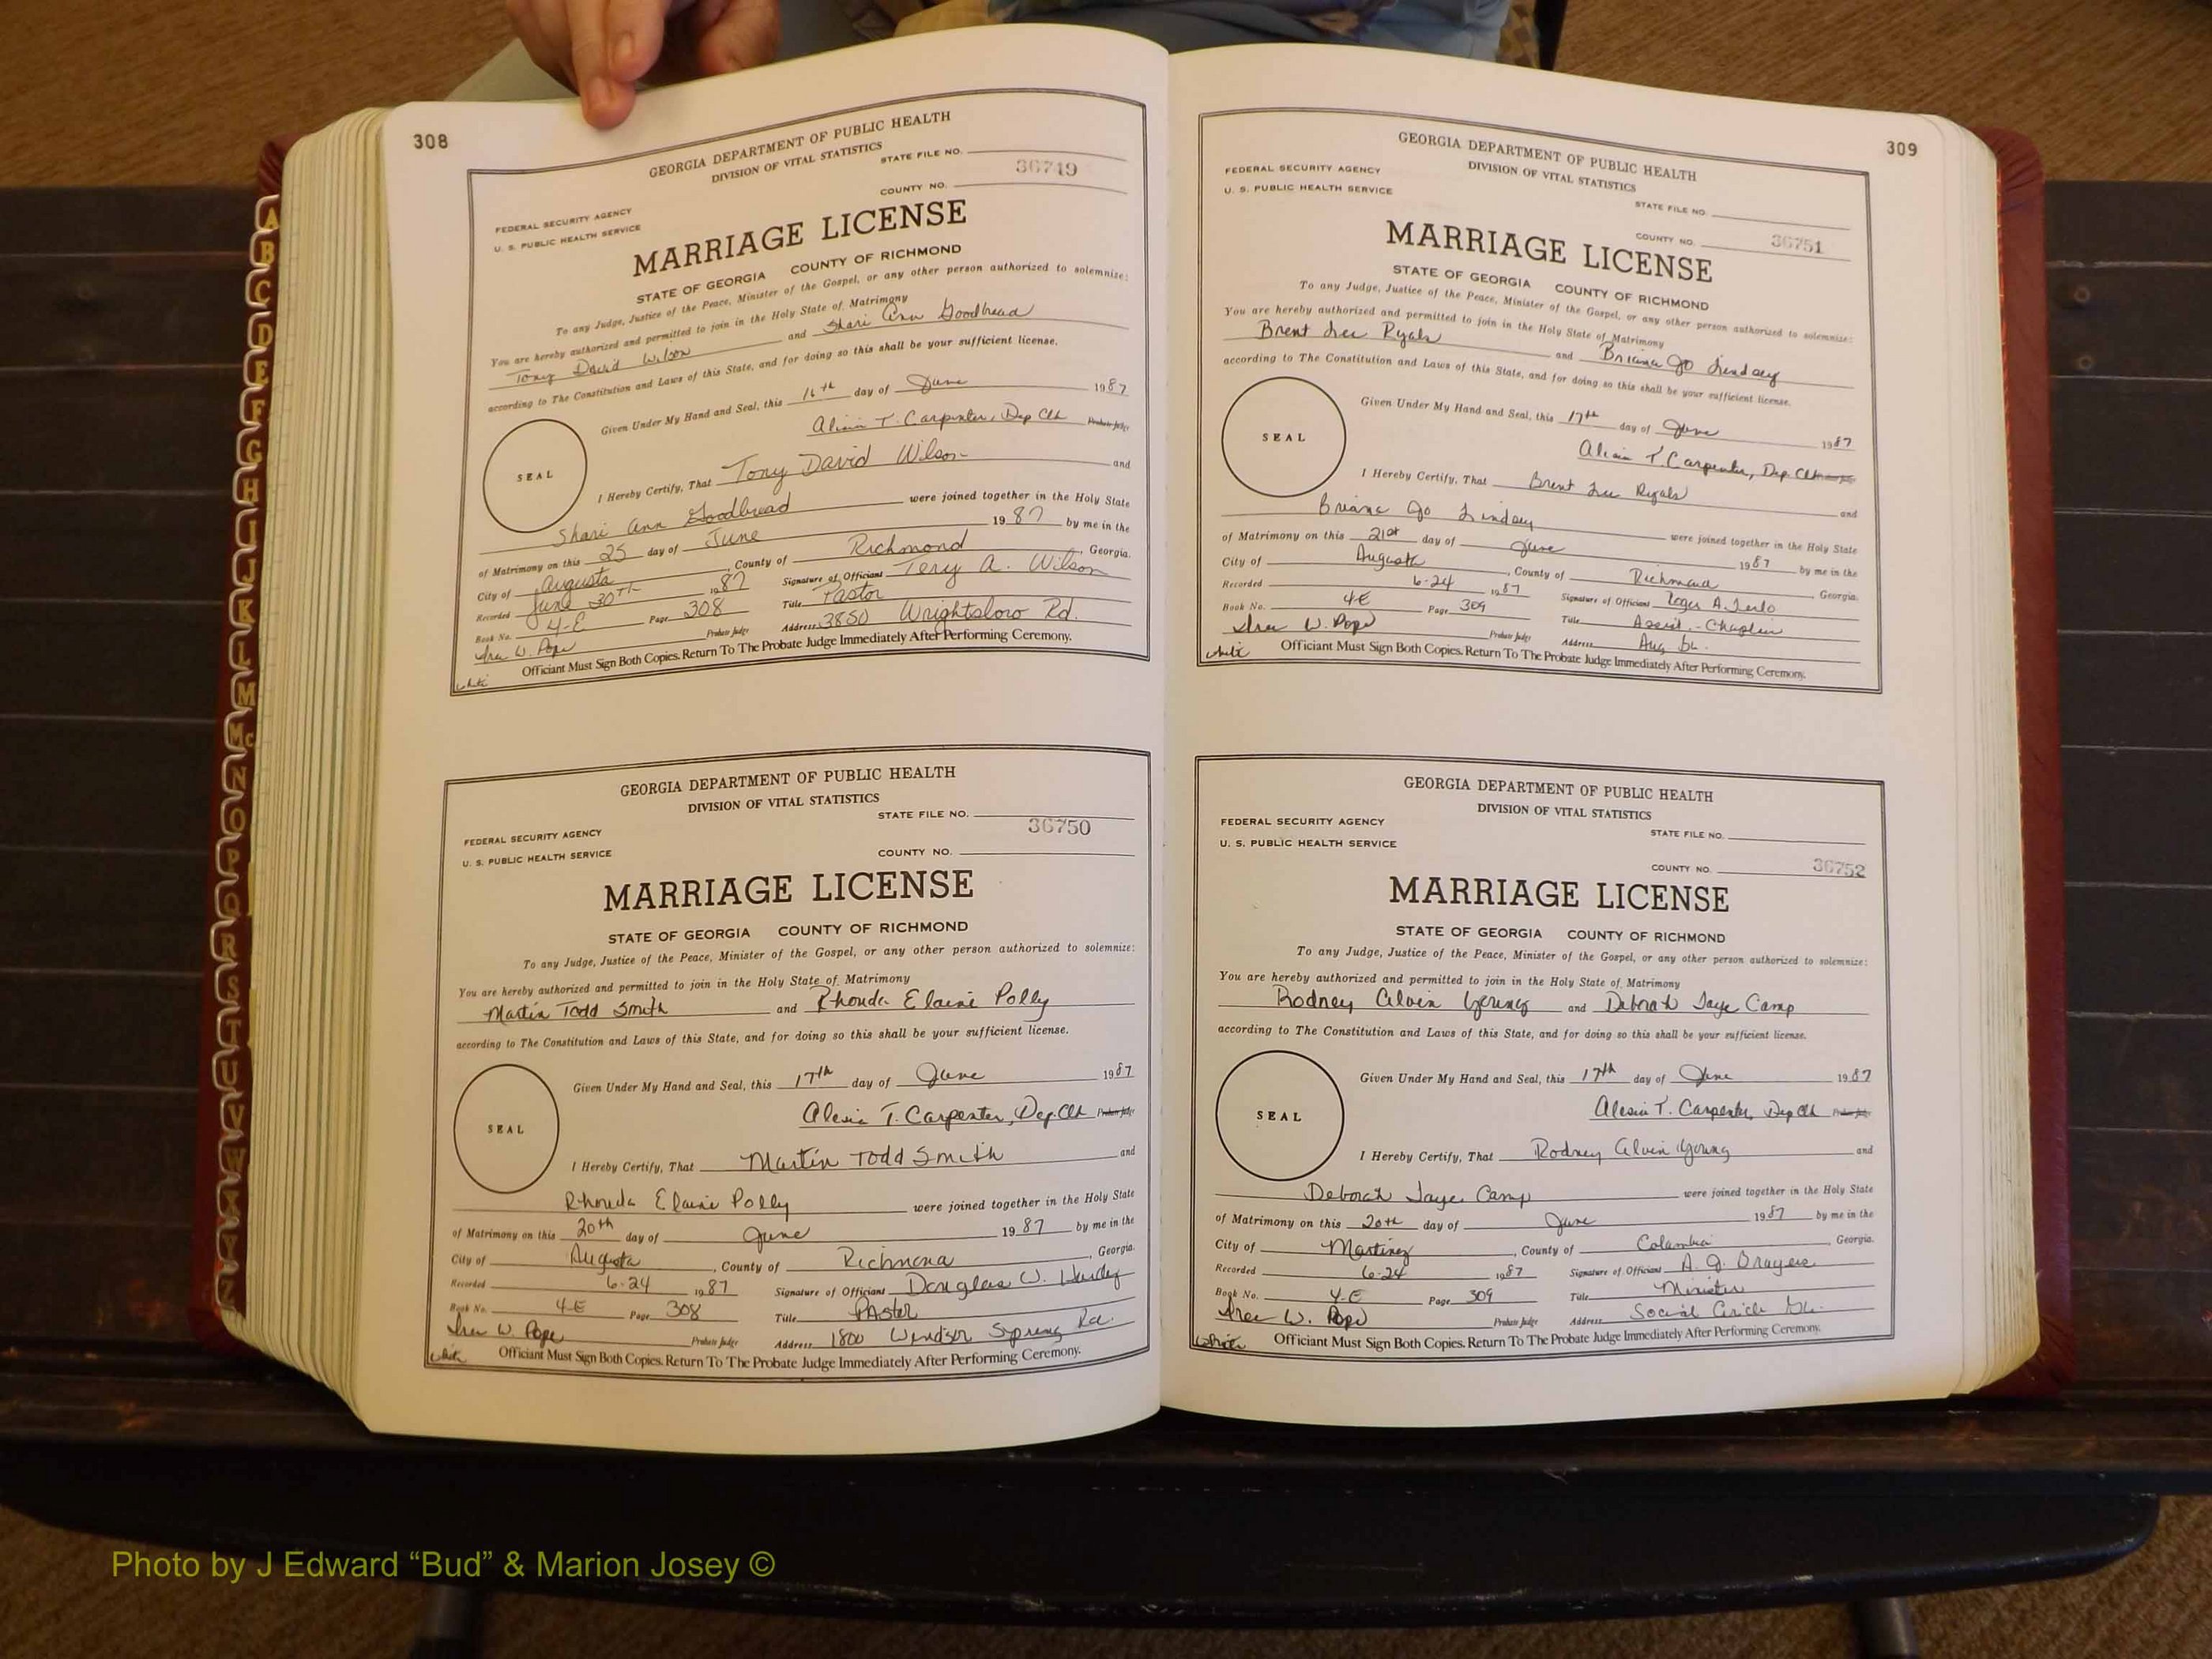 308
GEORGIA DEPARTMENT OF PUBLIC HEALTH
DIVISION OF VITAL STATISTICS
STATE FILE NO.
36749
COUNTY NO.
FEDERAL SECURITY AGENCY
U. S. PUBLIC HEALTH SERVICE
MARRIAGE LICENSE
STATE OF GEORGIA COUNTY OF RICHMOND
To any Judge, Justice of the Peace, Minister of the Gospel, or any other person authorized to solemnize:
You are hereby authorized and permitted to join in the Holy State of Matrimony
Tony David Wilson and Shari Ann Goodbread
according to The Constitution and Laws of this State, and for doing so this shall be your sufficient license.
Given Under My Hand and Seal, this 16th day of June 1987
T. Carpenter, Dep Clk Probate Judge
SEAL
I Hereby Certify, That Tony David Wilson and
Shari Ann Goodbread were joined together in the Holy State
of Matrimony on this 25 day of June 1987 by me in the
City of Augusta, County of Richmond, Georgia.
Recorded June 30TH 1987 Signature of Officiant A. Wilson
Book No. 4-E Page 308 Title Pastor
W. Pope Probate Judge Address 3850 Wrightsboro Rd.
Officiant Must Sign Both Copies. Return To The Probate Judge Immediately After Performing Ceremony.
white
GEORGIA DEPARTMENT OF PUBLIC HEALTH
DIVISION OF VITAL STATISTICS
STATE FILE NO.
36750
FEDERAL SECURITY AGENCY
U. S. PUBLIC HEALTH SERVICE
COUNTY NO.
MARRIAGE LICENSE
STATE OF GEORGIA COUNTY OF RICHMOND
To any Judge, Justice of the Peace, Minister of the Gospel, or any other person authorized to solemnize:
You are hereby authorized and permitted to join in the Holy State of Matrimony
Martin Todd Smith and Rhonda Elaine Polly
according to The Constitution and Laws of this State, and for doing so this shall be your sufficient license.
Given Under My Hand and Seal, this 17th day of June 1987
T. Carpenter, Dep. Clk Probate Judge
SEAL
I Hereby Certify, That Martin Todd Smith and
Rhonda Elaine Polly were joined together in the Holy State
of Matrimony on this 20th day of June 1987 by me in the
City of Augusta, County of Richmond, Georgia.
Recorded 6-24 1987 Signature of Officiant Douglas W.
Book No. 4-E Page 308 Title PAstor
W. Pope Probate Judge Address 1800 Windsor Spring Rd.
white Officiant Must Sign Both Copies. Return To The Probate Judge Immediately After Performing Ceremony.
309
GEORGIA DEPARTMENT OF PUBLIC HEALTH
DIVISION OF VITAL STATISTICS
FEDERAL SECURITY AGENCY
U. S. PUBLIC HEALTH SERVICE
STATE FILE NO.
COUNTY NO. 36751
MARRIAGE LICENSE
STATE OF GEORGIA COUNTY OF RICHMOND
To any Judge, Justice of the Peace, Minister of the Gospel, or any other person authorized to solemnize:
You are hereby authorized and permitted to join in the Holy State of Matrimony
Brent Lee Ryals and Briana Jo Lindsey
according to The Constitution and Laws of this State, and for doing so this shall be your sufficient license.
Given Under My Hand and Seal, this 17th day of June 1987
T. Carpenter, Dep. Clk
SEAL
I Hereby Certify, That Brent Lee Ryals and
Briana Jo Lindsey were joined together in the Holy State
of Matrimony on this 21st day of June 1987 by me in the
City of Augusta, County of Richmond, Georgia.
Recorded 6-24 1987 Signature of Officiant A.
Book No. 4-E Page 309 Title Assist.-Chaplain
W. Pope Probate Judge Address Aug Ga.
white Officiant Must Sign Both Copies. Return To The Probate Judge Immediately After Performing Ceremony.
GEORGIA DEPARTMENT OF PUBLIC HEALTH
DIVISION OF VITAL STATISTICS
FEDERAL SECURITY AGENCY
U. S. PUBLIC HEALTH SERVICE
STATE FILE NO.
COUNTY NO. 36752
MARRIAGE LICENSE
STATE OF GEORGIA COUNTY OF RICHMOND
To any Judge, Justice of the Peace, Minister of the Gospel, or any other person authorized to solemnize:
You are hereby authorized and permitted to join in the Holy State of Matrimony
Rodney Alvin Young and Deborah Jaye Camp
according to The Constitution and Laws of this State, and for doing so this shall be your sufficient license.
Given Under My Hand and Seal, this 17th day of June 1987
T. Carpenter, Dep Clk Probate Judge
SEAL
I Hereby Certify, That Rodney Alvin Young and
Deborah Jaye Camp were joined together in the Holy State
of Matrimony on this 20th day of June 1987 by me in the
City of Martinez, County of Columbia, Georgia.
Recorded 6-24 1987 Signature of Officiant A. J.
Book No. 4-E Page 309 Title Minister
W. Pope Probate Judge Address Social Circle Ga.
white Officiant Must Sign Both Copies. Return To The Probate Judge Immediately After Performing Ceremony.
A
B
C
D
E
F
G
H
I
J
K
L
M
Mc
N
O
P
Q
R
S
T
U
V
W
X
Y
Z
Photo by J Edward “Bud” & Marion Josey ©